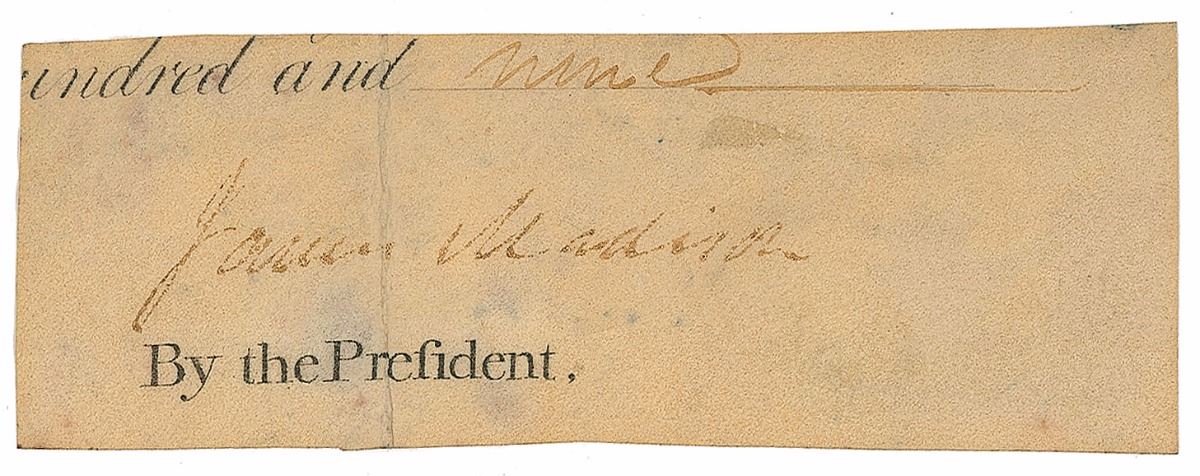 undred and nine
James Madison
By the Preſident,